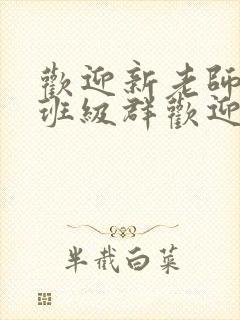 歡迎新老師
班級群歡迎
半截白菜